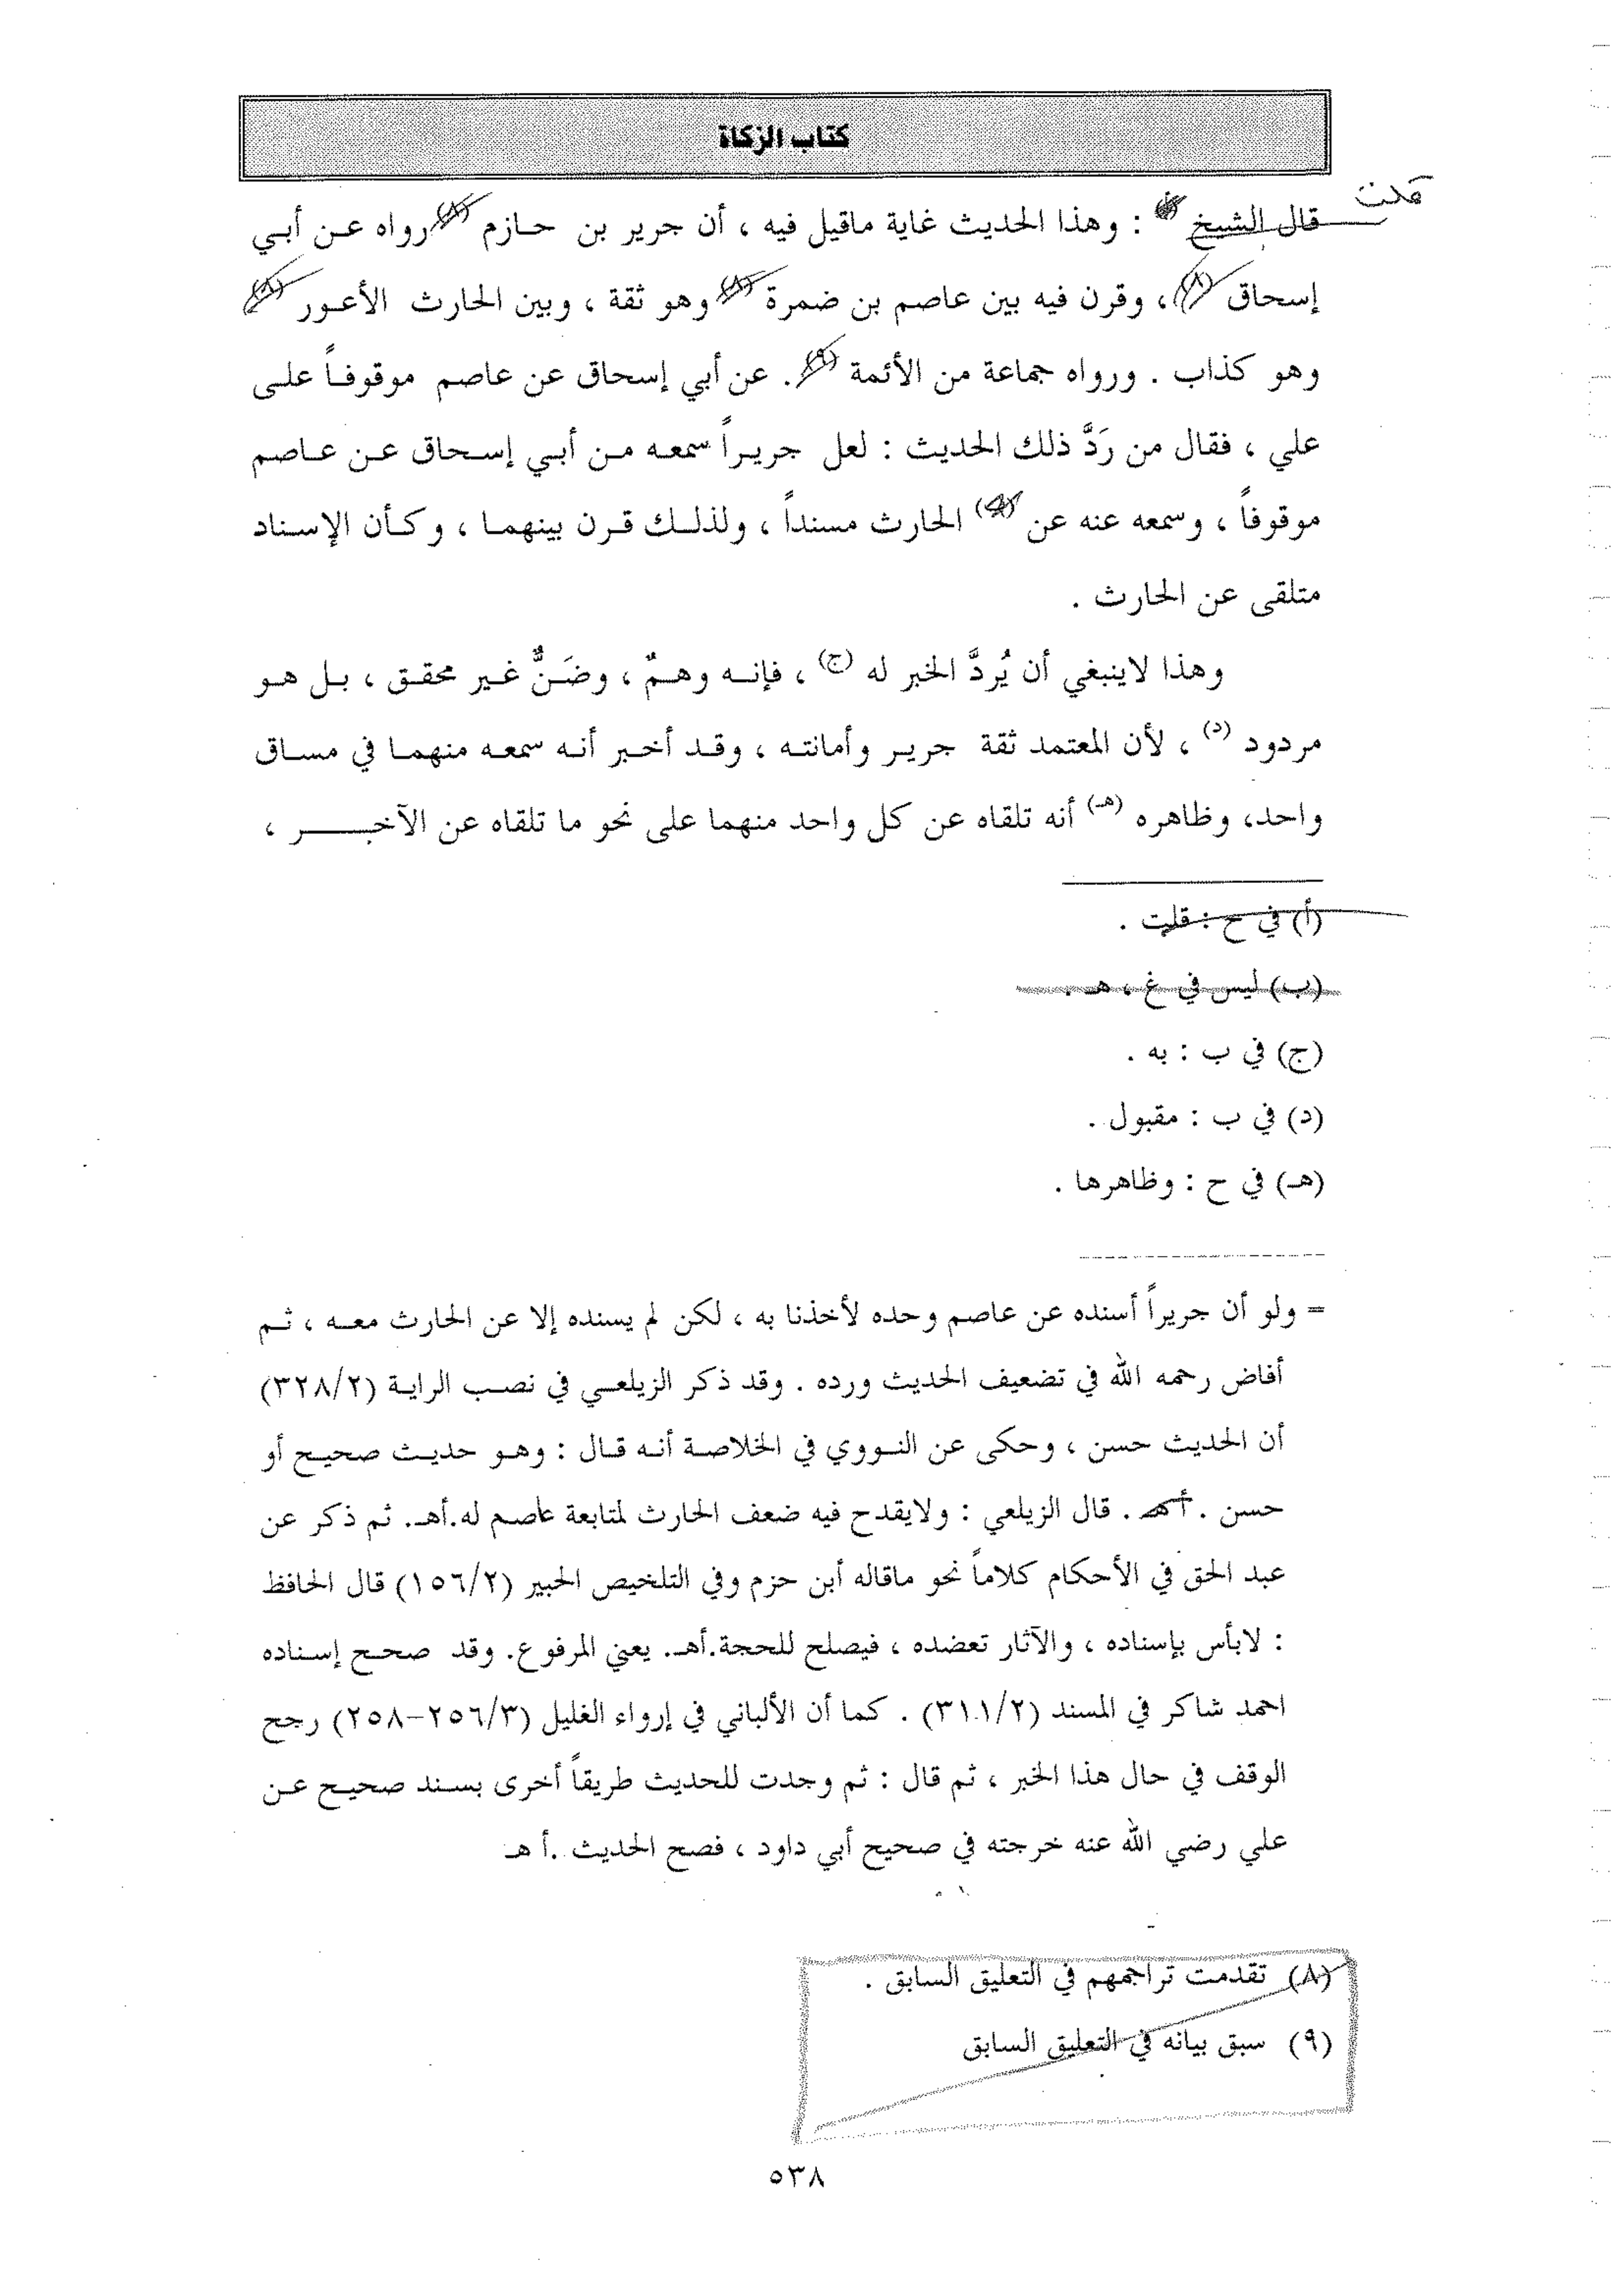 كتاب الزكاة
قلت
قال الشيخ : وهذا الحديث غاية ماقيل فيه ، أن جرير بن حازم (٨) رواه عن أبي
إسحاق (٨) ، وقرن فيه بين عاصم بن ضمرة (٨) وهو ثقة ، وبين الحارث الأعور (٨)
وهو كذاب . ورواه جماعة من الأئمة (٩) . عن أبي إسحاق عن عاصم موقوفاً على
علي ، فقال من رَدَّ ذلك الحديث : لعل جريراً سمعه من أبي إسحاق عن عاصم
موقوفاً ، وسمعه عنه عن (ب) الحارث مسنداً ، ولذلك قرن بينهما ، وكأن الإسناد
متلقى عن الحارث .
وهذا لاينبغي أن يُردَّ الخبر له (ج) ، فإنه وهمٌ ، وضَنٌّ غير محقق ، بل هو
مردود (د) ، لأن المعتمد ثقة جرير وأمانته ، وقد أخبر أنه سمعه منهما في مساق
واحد، وظاهره (هـ) أنه تلقاه عن كل واحد منهما على نحو ما تلقاه عن الآخر ،
(أ) في ح : قلت .
(ب) ليس في غ ، هـ .
(ج) في ب : به .
(د) في ب : مقبول .
(هـ) في ح : وظاهرها .
= ولو أن جريراً أسنده عن عاصم وحده لأخذنا به ، لكن لم يسنده إلا عن الحارث معه ، ثم
أفاض رحمه الله في تضعيف الحديث ورده . وقد ذكر الزيلعي في نصب الراية (٣٢٨/٢)
أن الحديث حسن ، وحكى عن النووي في الخلاصة أنه قال : وهو حديث صحيح أو
حسن . أهـ . قال الزيلعي : ولايقدح فيه ضعف الحارث لمتابعة عاصم له.أهـ. ثم ذكر عن
عبد الحق في الأحكام كلاماً نحو ماقاله أبن حزم وفي التلخيص الحبير (١٥٦/٢) قال الحافظ
: لابأس بإسناده ، والآثار تعضده ، فيصلح للحجة.أهـ. يعني المرفوع. وقد صحح إسناده
احمد شاكر في المسند (٣١١/٢) . كما أن الألباني في إرواء الغليل (٢٥٦/٣-٢٥٨) رجح
الوقف في حال هذا الخبر ، ثم قال : ثم وجدت للحديث طريقاً أخرى بسند صحيح عن
علي رضي الله عنه خرجته في صحيح أبي داود ، فصح الحديث .أ هـ
(٨) تقدمت تراجمهم في التعليق السابق .
(٩) سبق بيانه في التعليق السابق
٥٣٨